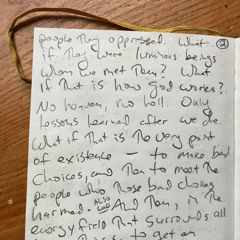 people they oppressed. What (2)
if they were luminous beings
when we met them? What
if that is how god works?
No heaven, no hell. Only
lessons learned after we die.
What if that is the very point
of existence – to make bad
choices, and then to meet the
people who those bad choices
harmed. ALSO GOOD And then, in the
energy field that surrounds all
to get an